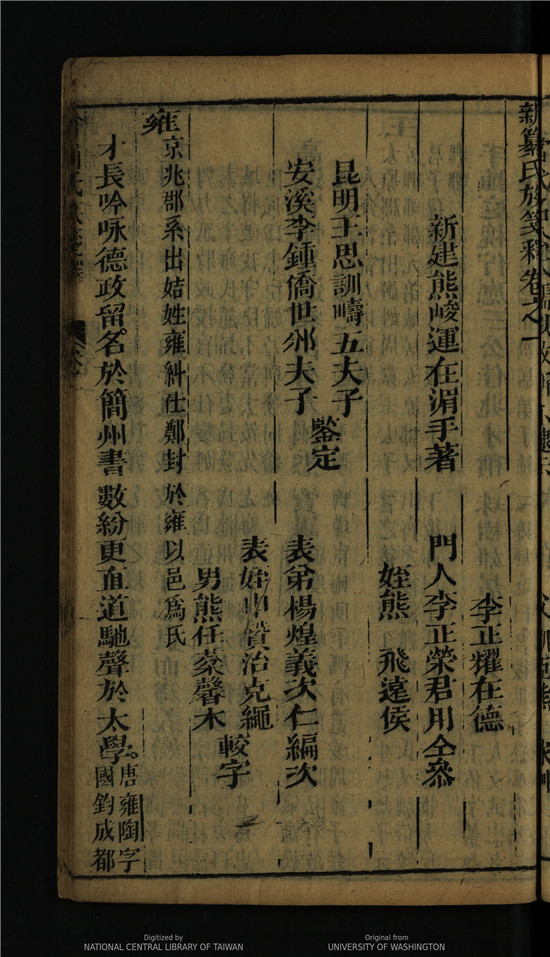 新纂氏族箋釋卷之一
新建熊峻運在湄手著
李正耀在德
門人李正榮君用仝叅
姪熊　飛遠侯
昆明王思訓疇五夫子
安溪李鍾僑世邠夫子
鑒定
表弟楊煌義次仁編次
表姪申賛治克繩
男熊任蒙馨木
較字
雍京兆郡系出姞姓雍糾仕鄭封於雍以邑爲氏
才長吟咏德政留名於簡州書數紛更直道馳聲於太學。唐雍陶字國鈞成都
Digitized by
NATIONAL CENTRAL LIBRARY OF TAIWAN
Original from
UNIVERSITY OF WASHINGTON